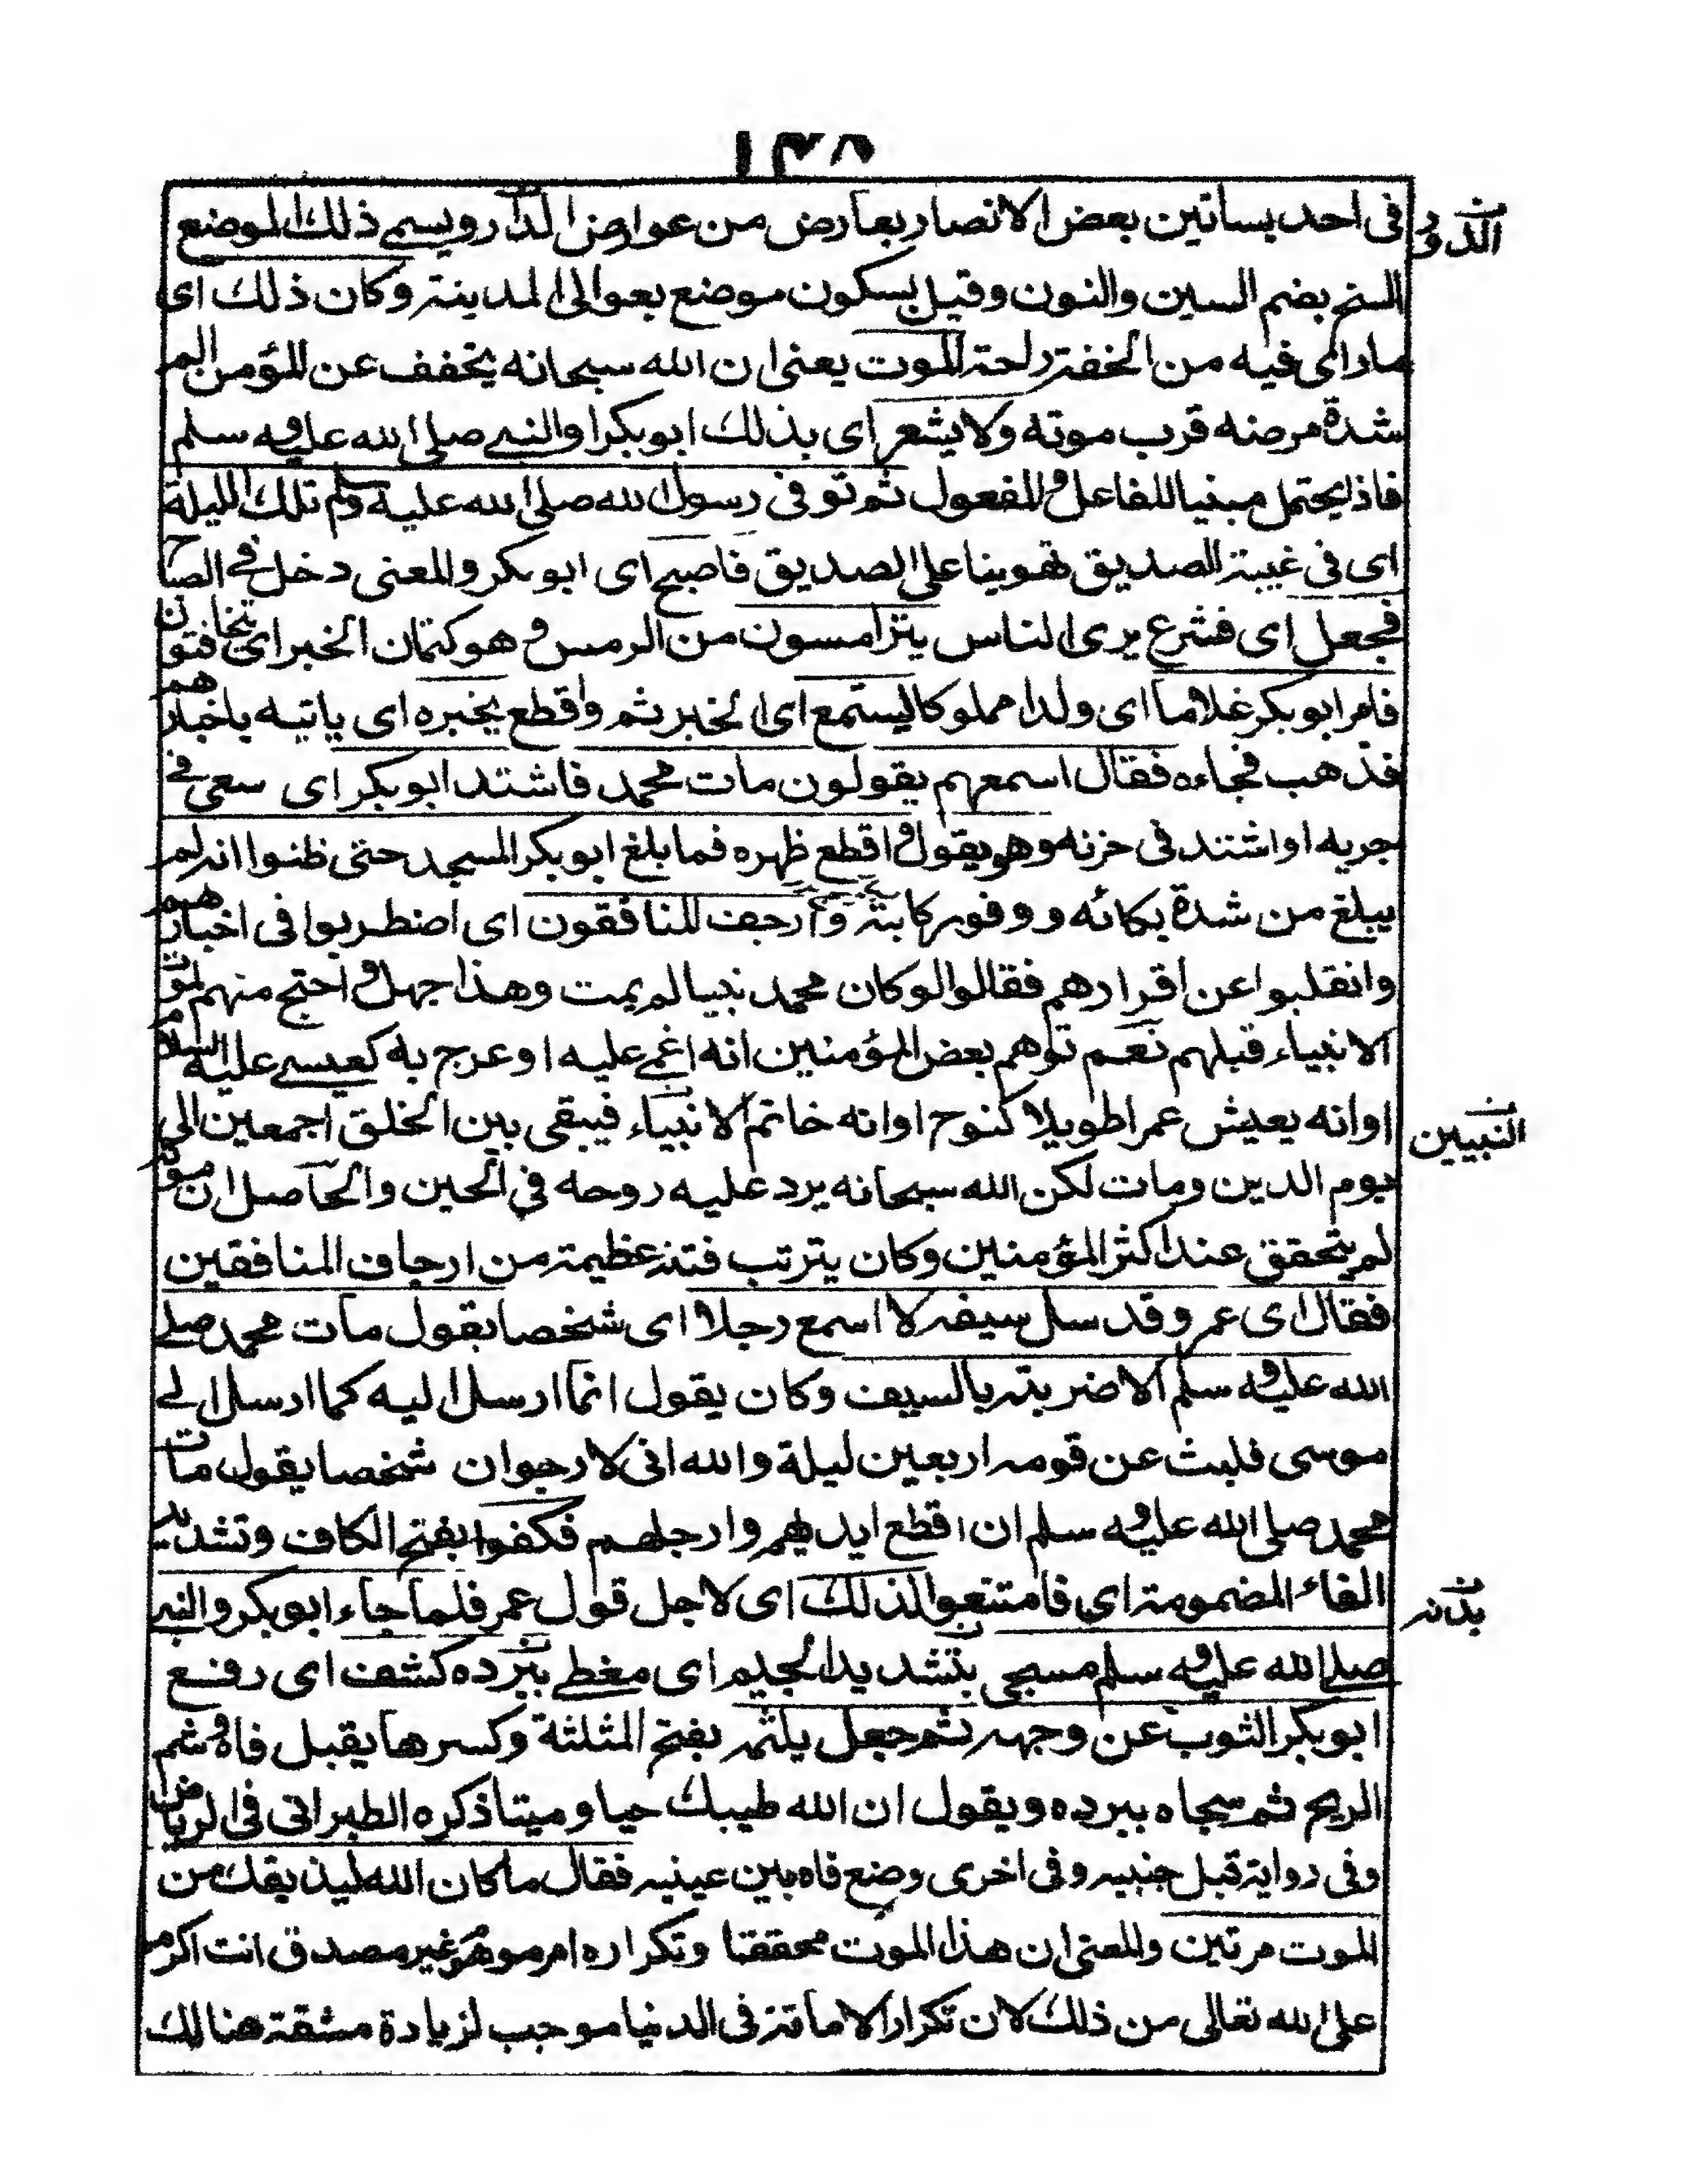 ١٣٨
فى احد بساتين بعض الانصار بعارض من عوارض الدار ويسمى ذلك الموضع
الدور
السنح بضم السين والنون وقيل بسكون موضع بعوالى المدينة وكان ذلك اى
ما راى فيه من الخفة راحة الموت يعنى ان الله سبحانه يخفف عن المؤمن الم
شدة مرضه قرب موته ولا يشعر اى بذلك ابو بكر او النبى صلى الله عليه وسلم
فاذا يحتمل مبنيا للفاعل وللمفعول ثم توفى رسول الله صلى الله عليه وسلم تلك الليلة
اى فى غيبة الصديق تهوينا على الصديق فاصبح اى ابو بكر والمعنى دخل فى الصباح
فجعل اى فشرع يرى الناس يترامسون من الرمس وهو كتمان الخبر اى يتخافتون
فامر ابو بكر غلاما اى ولدا مملوكا ليستمع اى الخبر ثم واقطع يخبره اى ياتيه باخبارهم
فذهب فجاءه فقال اسمعهم يقولون مات محمد فاشتد ابو بكر اى سعى فى
جريه او اشتد فى حزنه وهو يقول واقطع ظهره فما بلغ ابو بكر المسجد حتى ظنوا انه لم
يبلغ من شدة بكائه ووفور كابته وارجف المنافقون اى اضطربوا فى اخبارهم
وانقلبوا عن اقرارهم فقالوا لو كان محمد نبيا لم يمت وهذا جهل واحتج منهم لموت
الانبياء قبلهم نعم توهم بعض المؤمنين انه اغمى عليه او عرج به كعيسى عليه السلام
او انه يعيش عمرا طويلا كنوح او انه خاتم الانبياء فيبقى بين الخلق اجمعين الى
النبيين
يوم الدين ومات لكن الله سبحانه يرد عليه روحه فى الحين والحاصل ان موته
لم يتحقق عند اكثر المؤمنين وكان يترتب فتنة عظيمة من ارجاف المنافقين
فقال اى عمر وقد سل سيفه لا اسمع رجلا اى شخصا يقول مات محمد صلى
الله عليه وسلم الا ضربته بالسيف وكان يقول انما ارسل اليه كما ارسل الى
موسى فلبث عن قومه اربعين ليلة والله انى لارجو ان شخصا يقول مات
محمد صلى الله عليه وسلم ان اقطع ايديهم وارجلهم فكفوا بفتح الكاف وتشديد
الفاء المضمومة اى فامتنعوا لذلك اى لاجل قول عمر فلما جاء ابو بكر والنبى
بدنه
صلى الله عليه وسلم مسجى بتشديد الجيم اى مغطى ببرده كشف اى رفع
ابو بكر الثوب عن وجهه ثم جعل يلثمه بفتح المثلثة وكسرها يقبل فاه وشم
الريح ثم سجاه ببرده ويقول ان الله طيبك حيا وميتا ذكره الطبرانى فى الرياض
وفى رواية قبل جنبيه وفى اخرى وضع فاه بين عينيه فقال ما كان الله ليذيقك من
الموت مرتين والمعنى ان هذا الموت محققنا وتكراره امر موهوم غير مصدق انت اكرم
على الله تعالى من ذلك لان تكرار الاماتة فى الدنيا موجب لزيادة مشقة هنالك